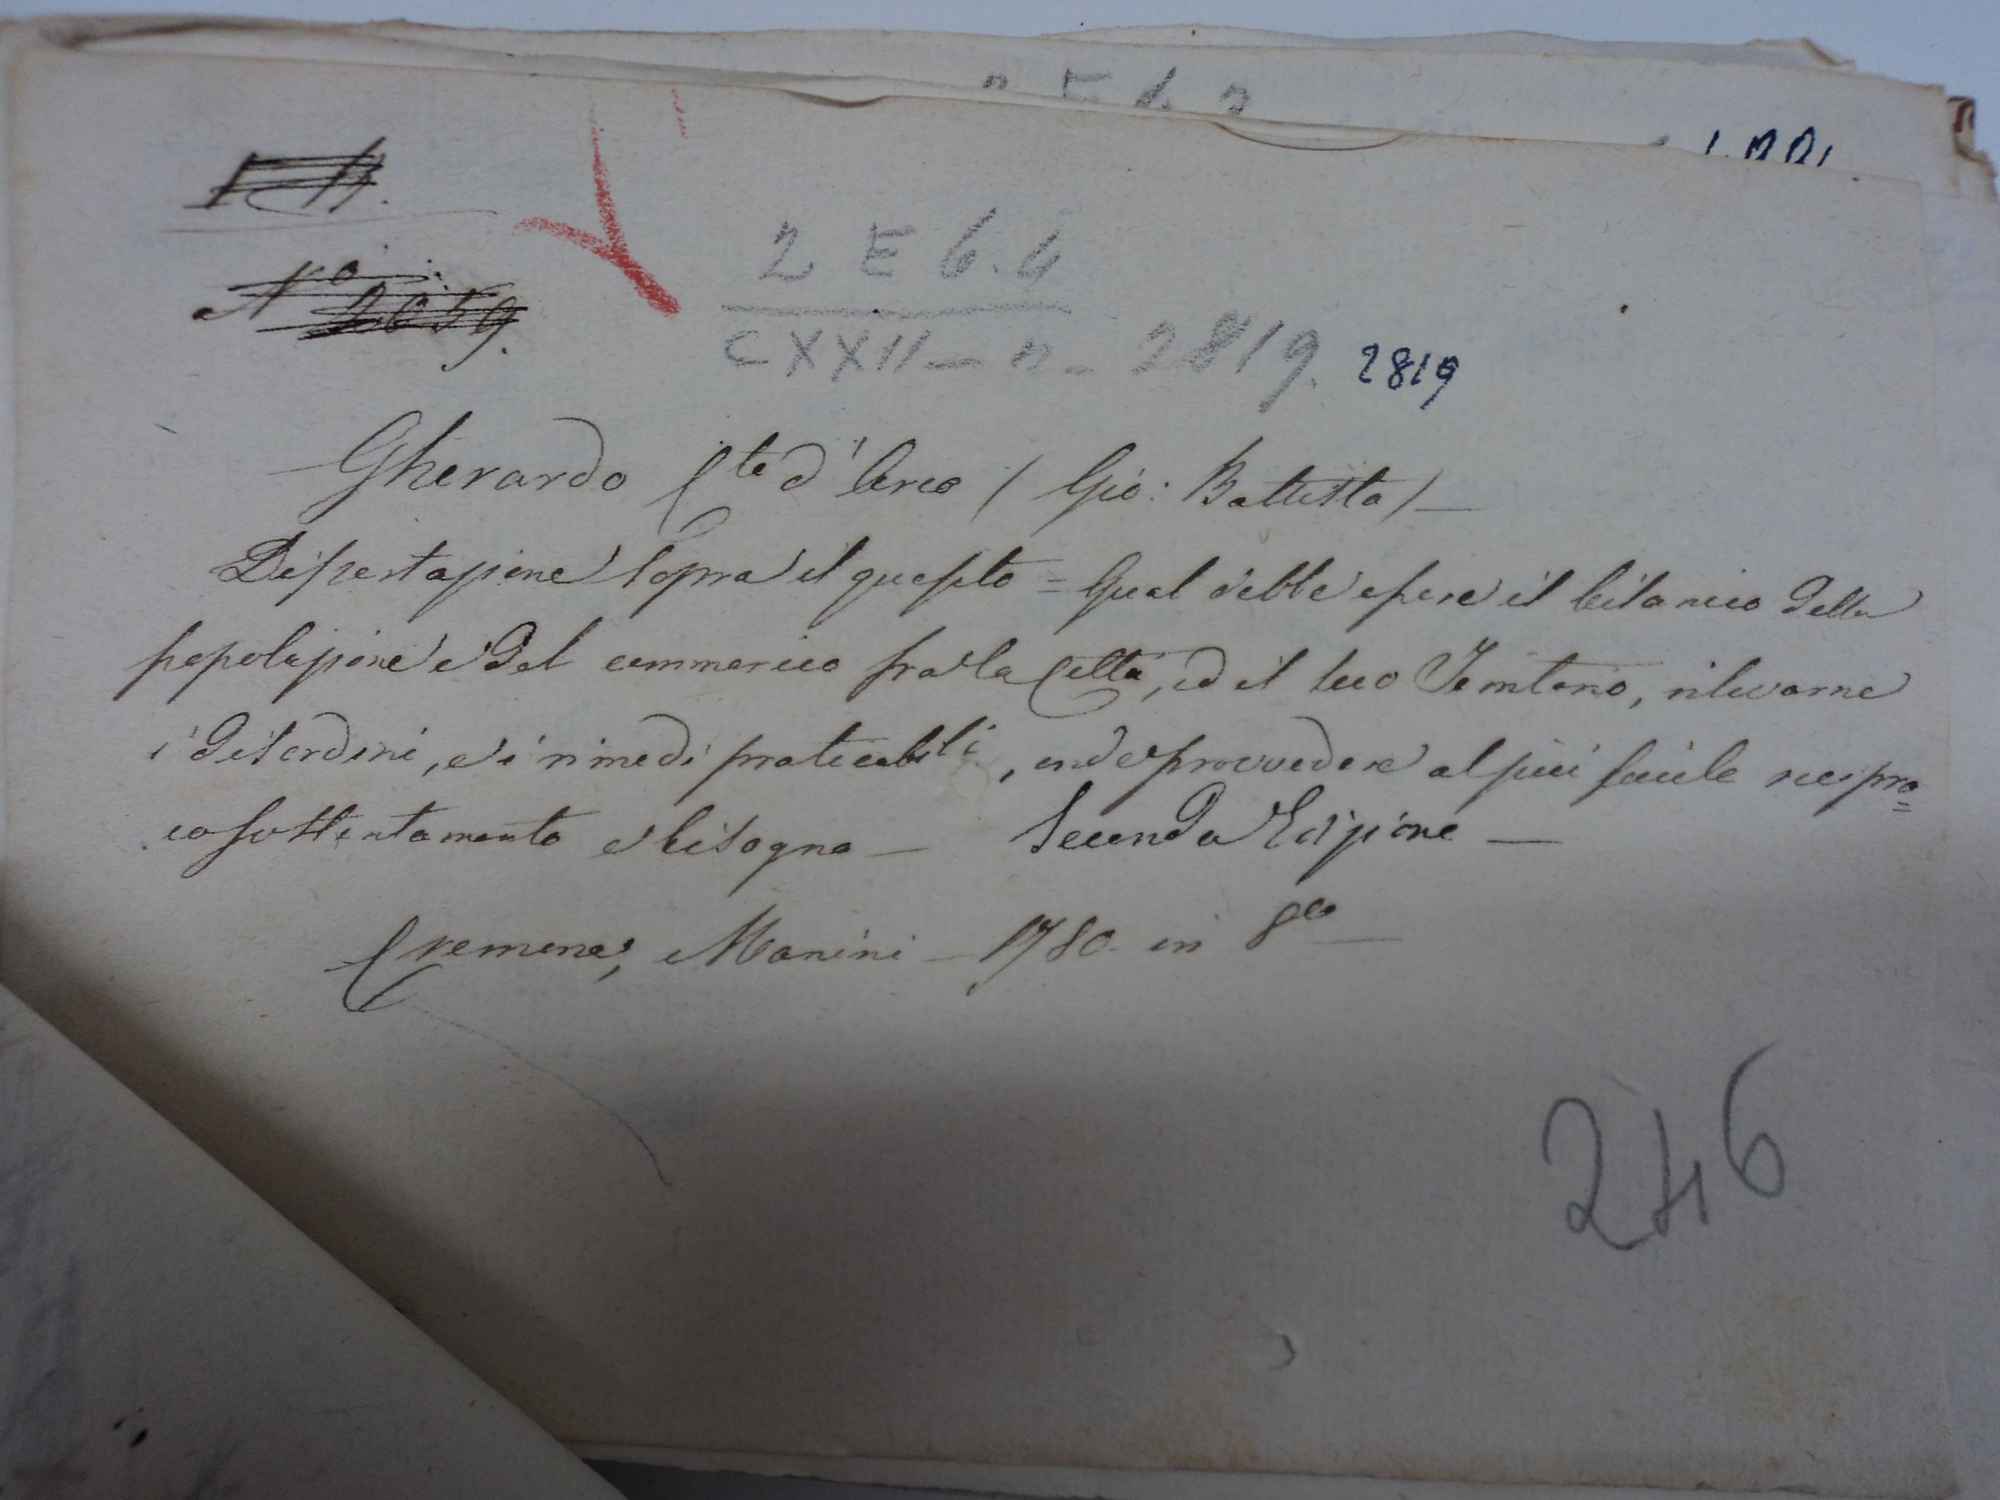 Nº 2059.
2 E 6. 6
CXXII – n – 2819. 2819
Gherardo Cte d'Arco ( Gio: Battista ) —
Dissertazione sopra il quesito = Qual debbe essere il bilancio della
popolazione e del commercio fra la Città, ed il suo Territorio, rilevarne
i disordini, e i rimedi praticabili, onde provvedere al più facile recipro=
co sostentamento e bisogno — Seconda Edizione —
Cremona, Manini — 1780. in 8vo —
246